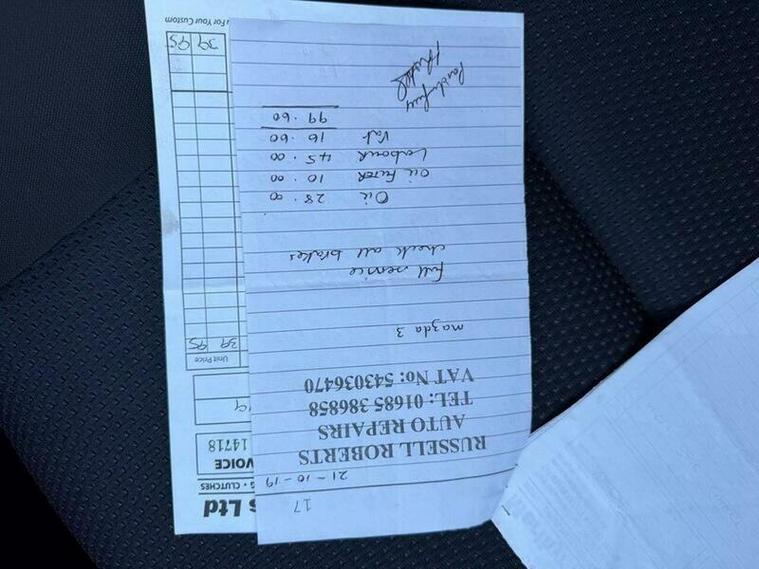 17
21-10-19
RUSSELL ROBERTS
AUTO REPAIRS
TEL: 01685 386858
VAT No: 543036470
mazda 3
full service
check all brakes
Oil 28.00
Oil FILTER 10.00
Labour 45.00
Vat 16.60
99.60
s Ltd
G • CLUTCHES
VOICE
14718
19
Unit Price
39 95
39 95
For Your Custom